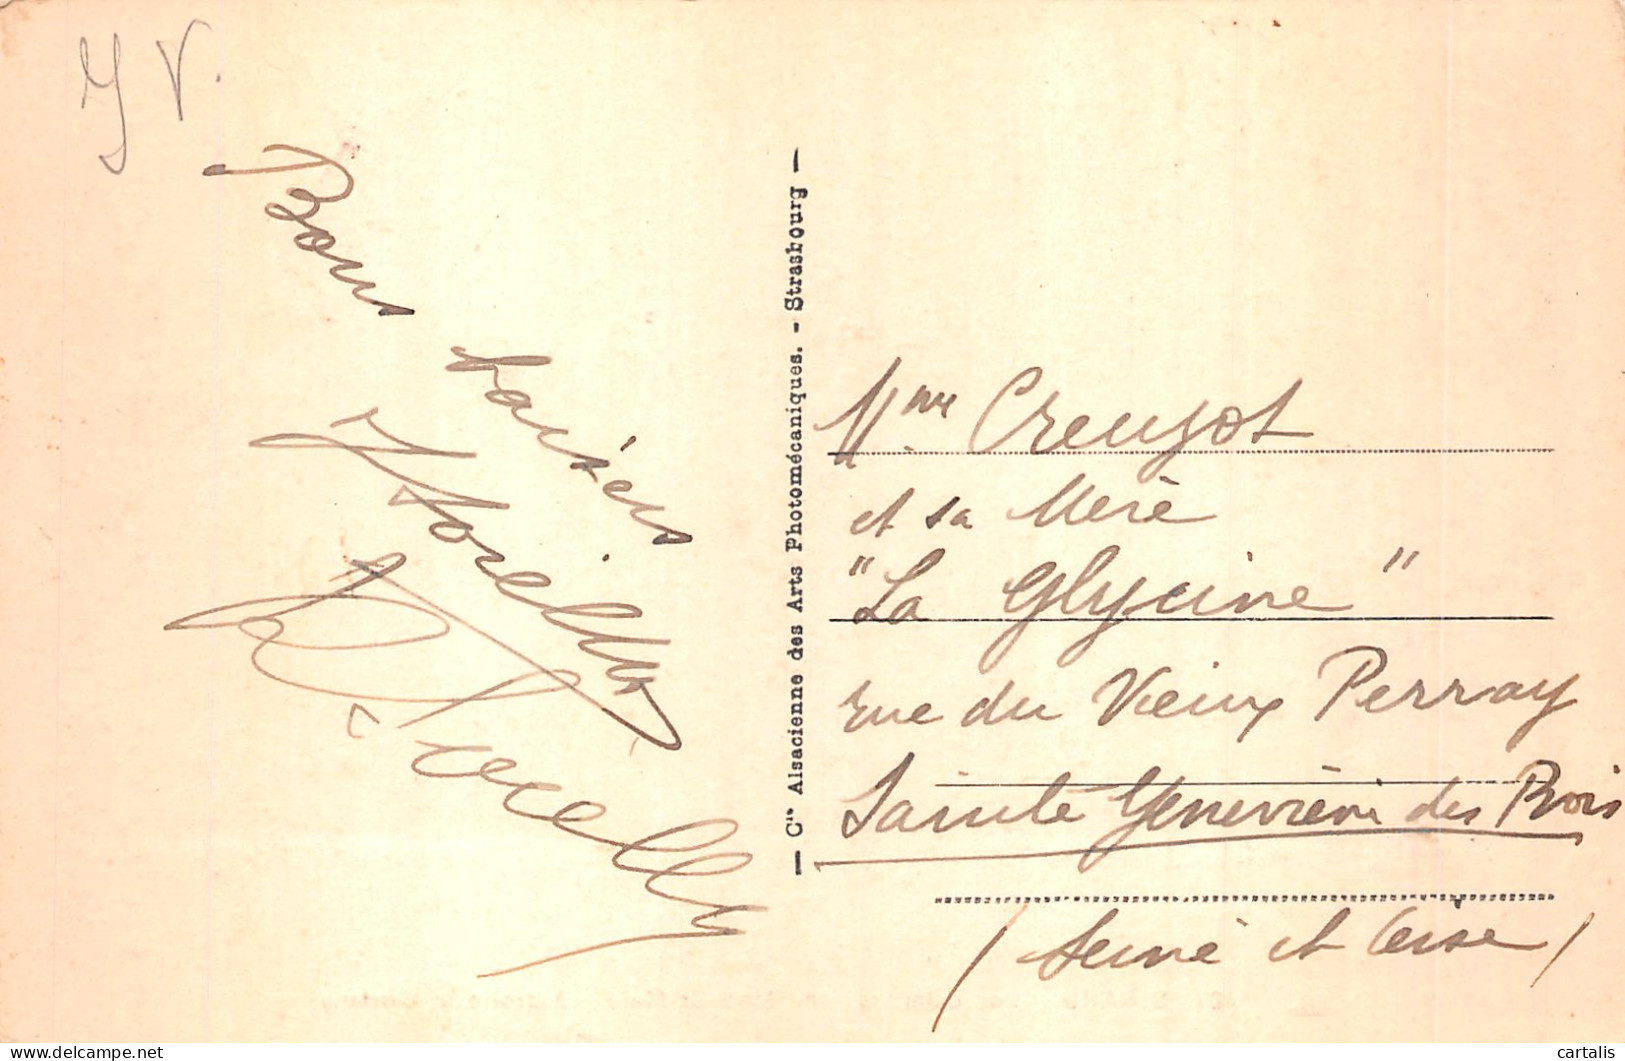 Y V.
Bons
baisers
— Cie Alsacienne des Arts Photomécaniques. - Strasbourg —
Mme Creuzot
et sa Mère
"La Glycine"
rue du Vieux Perray
Sainte Geneviève des Bois
(Seine et Oise)
cartalis